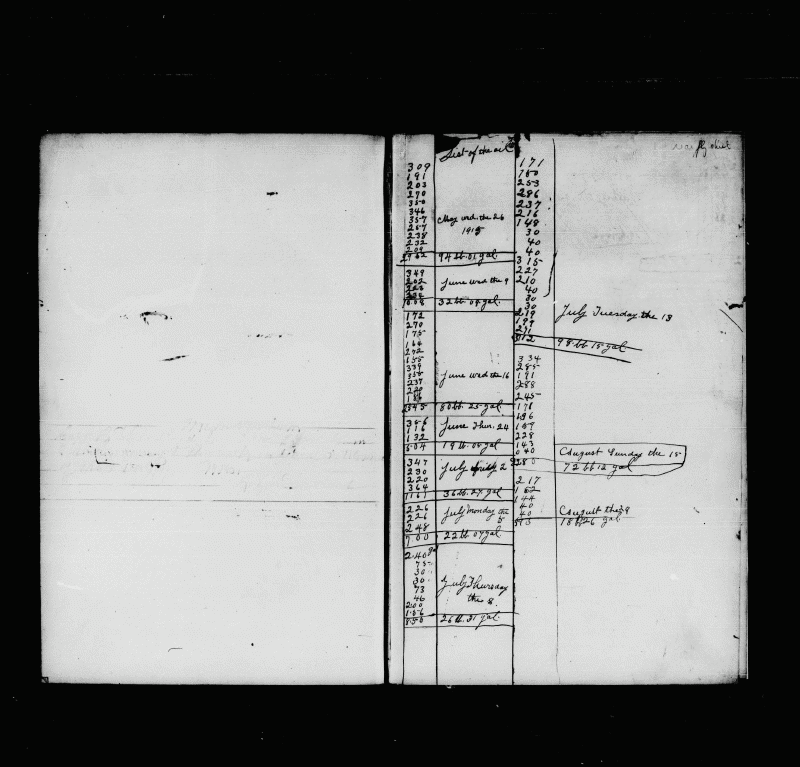 List of the oil
309
191
203
290
350
346
357
257
238
232
209
May wed. the 26
1915
2982
94 bb. 01 gal.
349
202
223
June wed the 9
1008
32 bb. 04 gal.
172
270
175
164
272
155
339
355
237
220
186
June wed the 16
2545
80 bb. 25 gal.
356
116
132
June Thur. 24
604
19 bb. 05 gal
347
230
220
364
July 2
1161
36 bb. 27 gal
226
226
248
July Monday the
5
700
22 bb 07 gal.
240
75
30
30
73
46
200
156
July Thursday
the 8.
850
26 bb. 31 gal.
171
150
253
286
237
216
148
30
40
40
315
227
210
40
30
30
219
199
271
July Tuesday the 13
312
98 bb 15 gal
334
285
191
288
245
171
196
159
228
143
040
August Sunday the 15
2280
72 bb 12 gal
217
152
144
40
40
August the 29
593
18 bb 26 gal